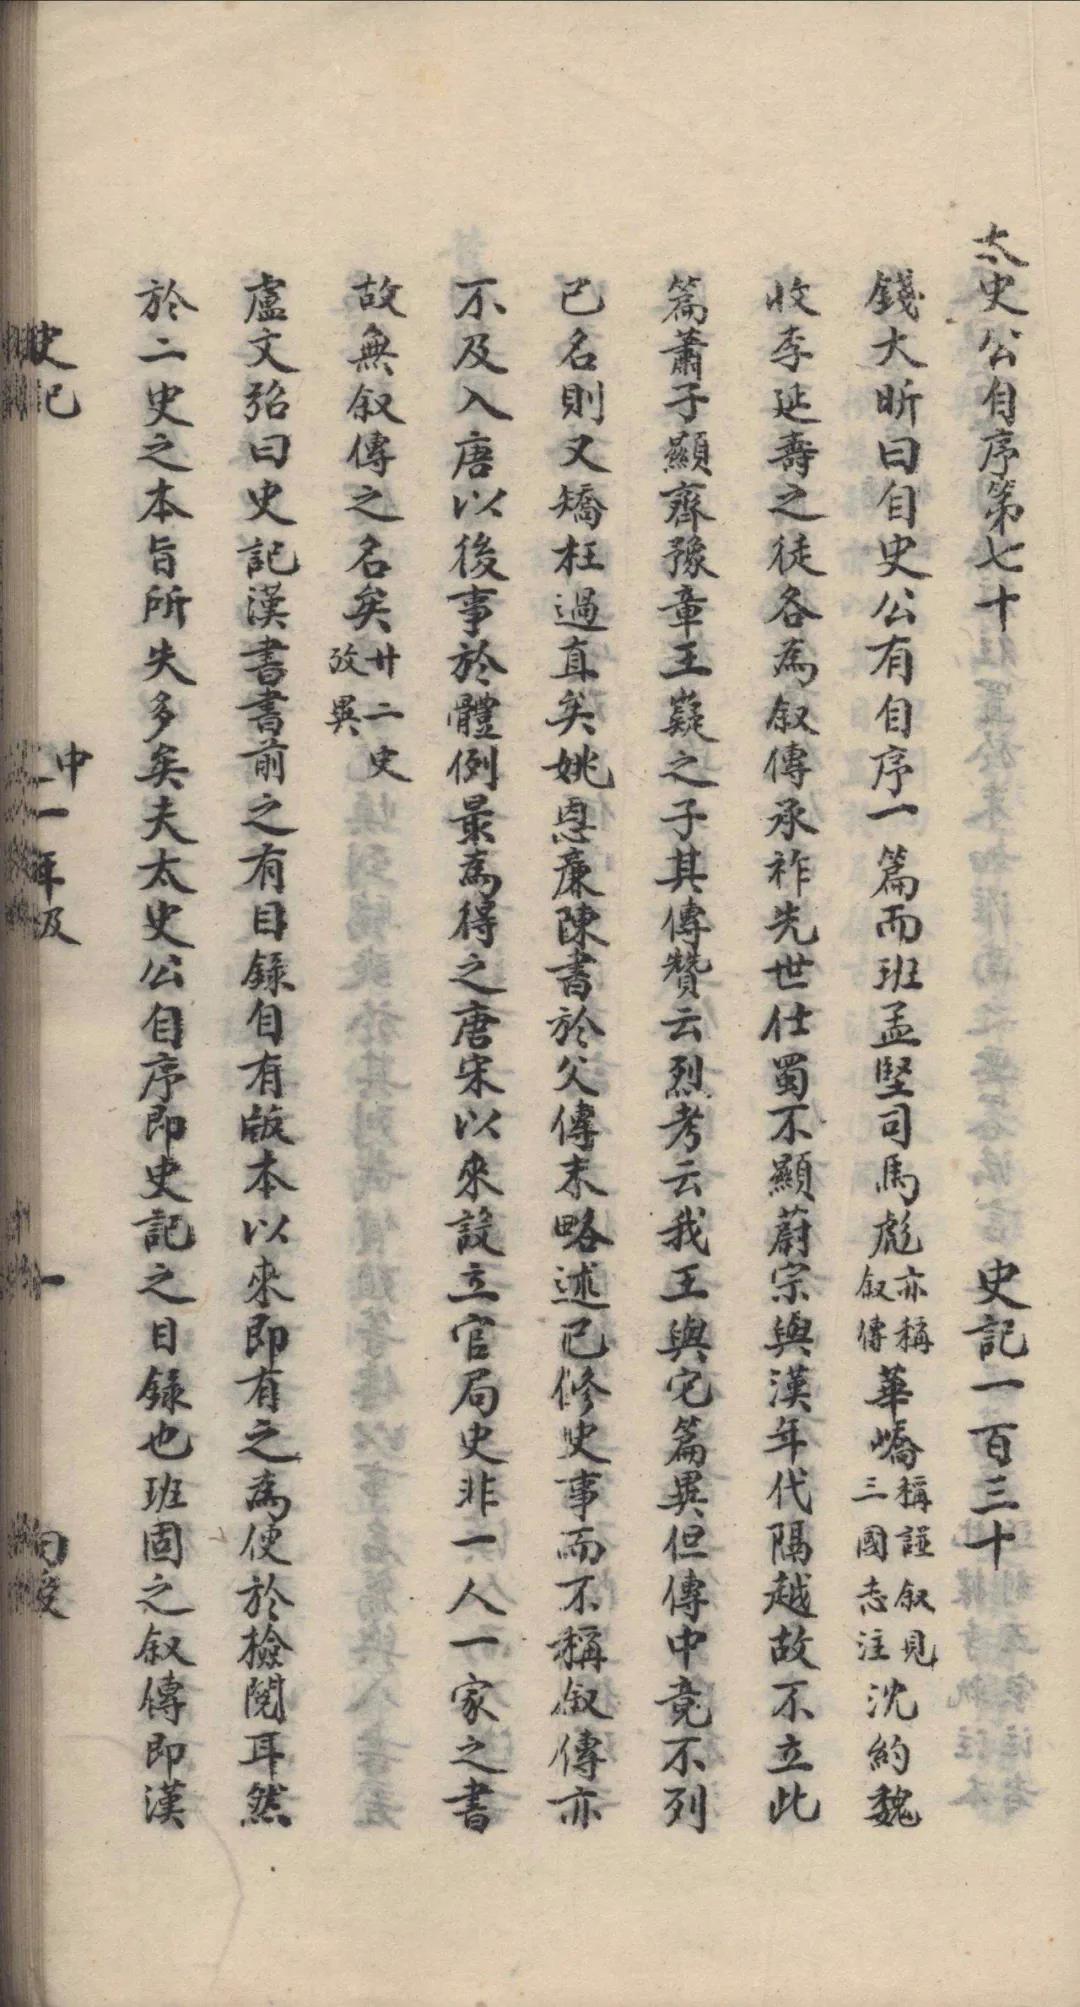 太史公自序第七十　史記一百三十
錢大昕曰自史公有自序一篇而班孟堅司馬彪亦稱叙傳華嶠稱譜叙見三國志注沈約魏
收李延壽之徒各為叙傳承祚先世仕蜀不顯蔚宗與漢年代隔越故不立此
篇蕭子顯齊豫章王嶷之子其傳贊云烈考云我王與它篇異但傳中竟不列
己名則又矯枉過直矣姚思廉陳書於父傳末略述己修史事而不稱叙傳亦
不及入唐以後事於體例最為得之唐宋以來設立官局史非一人一家之書
故無叙傳之名矣廿二史攷異
盧文弨曰史記漢書書前之有目錄自有版本以來即有之為便於檢閱耳然
於二史之本旨所失多矣夫太史公自序即史記之目錄也班固之叙傳即漢
史記
中
一